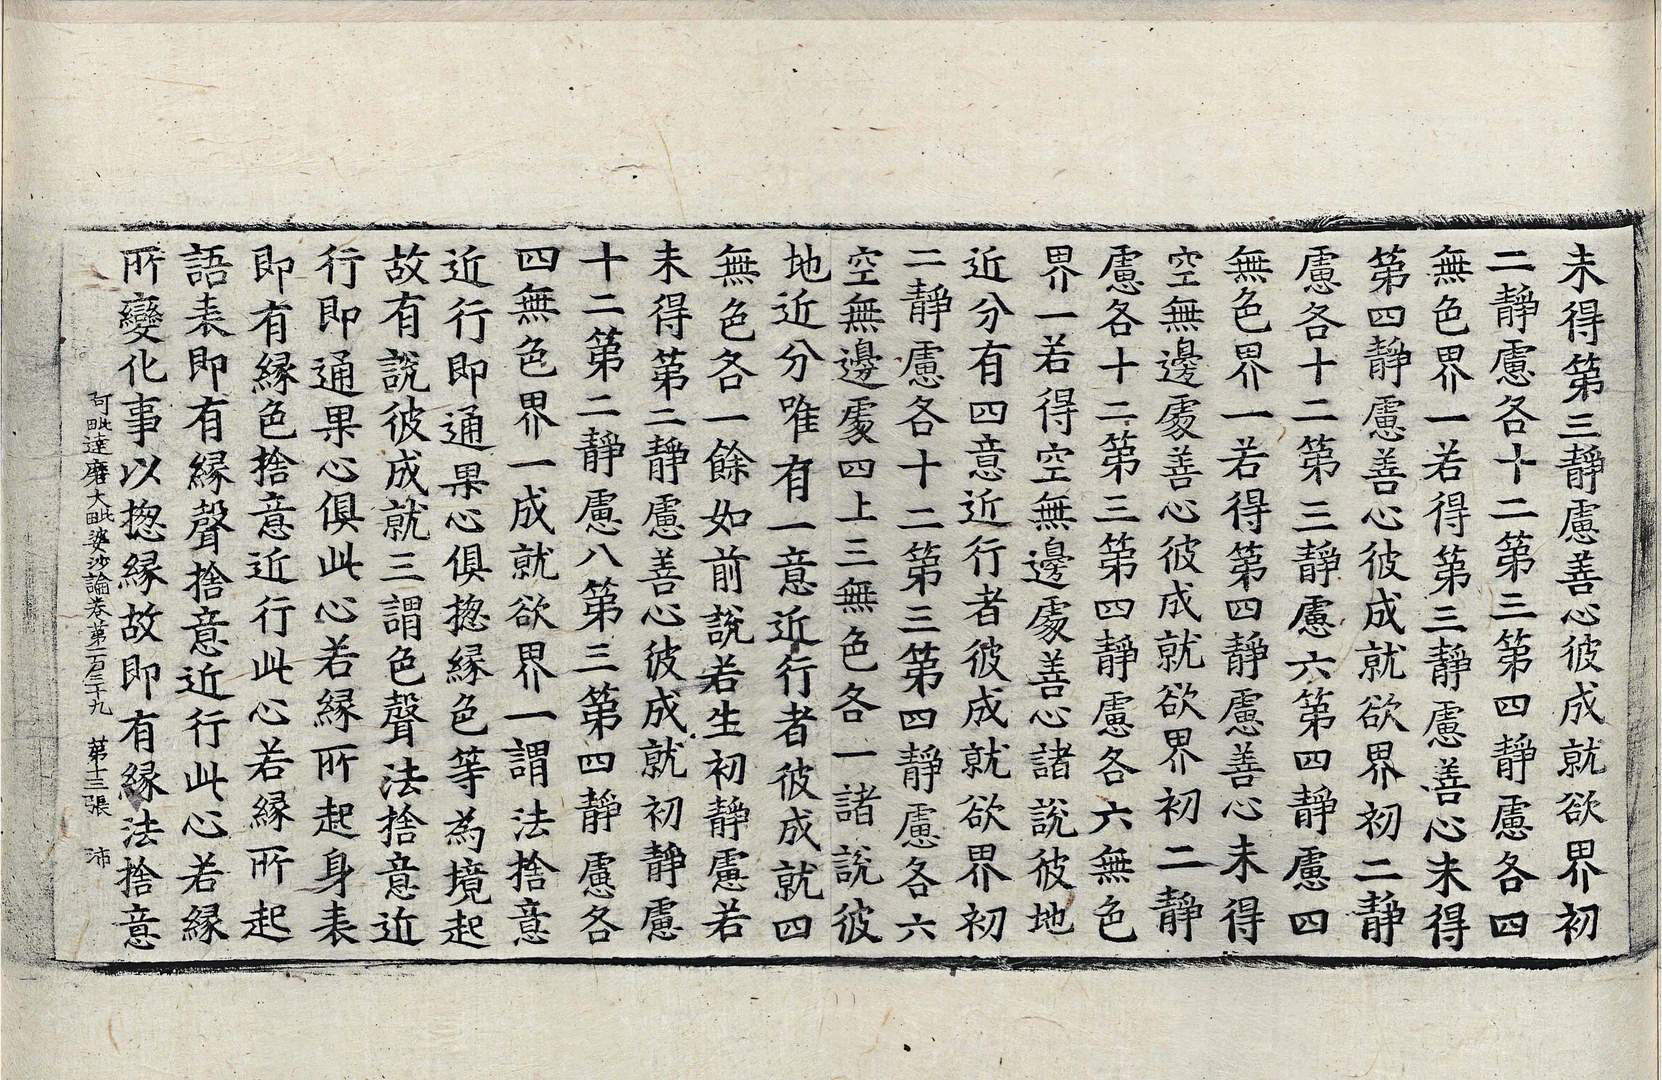 未得第三靜慮善心彼成就欲界初
二靜慮各十二第三第四靜慮各四
無色界一若得第三靜慮善心未得
第四靜慮善心彼成就欲界初二靜
慮各十二第三靜慮六第四靜慮四
無色界一若得第四靜慮善心未得
空無邊處善心彼成就欲界初二靜
慮各十二第三第四靜慮各六無色
界一若得空無邊處善心諸說彼地
近分有四意近行者彼成就欲界初
二靜慮各十二第三第四靜慮各六
空無邊處四上三無色各一諸說彼
地近分唯有一意近行者彼成就四
無色各一餘如前說若生初靜慮若
未得第二靜慮善心彼成就初靜慮
十二第二靜慮八第三第四靜慮各
四無色界一成就欲界一謂法捨意
近行即通果心俱揔緣色等為境起
故有說彼成就三謂色聲法捨意近
行即通果心俱此心若緣所起身表
即有緣色捨意近行此心若緣所起
語表即有緣聲捨意近行此心若緣
所變化事以揔緣故即有緣法捨意
阿毗達磨大毗婆沙論卷第一百三十九　第十三張　沛